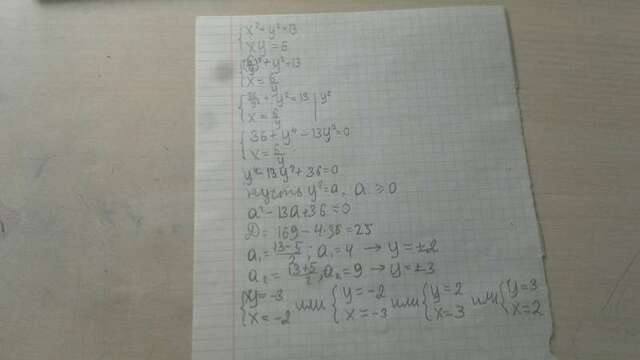 x² + y² = 13
xy = 6
(6/y)² + y² = 13
x = 6/y
36/y² + y² = 13 | y²
x = 6/y
36 + y⁴ - 13y² = 0
x = 6/y
y⁴ - 13y² + 36 = 0
пусть y² = a, a ≥ 0
a² - 13a + 36 = 0
D = 169 - 4·36 = 25
a₁ = (13-5)/2; a₁ = 4 → y = ±2
a₂ = (13+5)/2; a₂ = 9 → y = ±3
{y = -3 или {y = -2 или {y = 2 или {y = 3
x = -2 x = -3 x = 3 x = 2